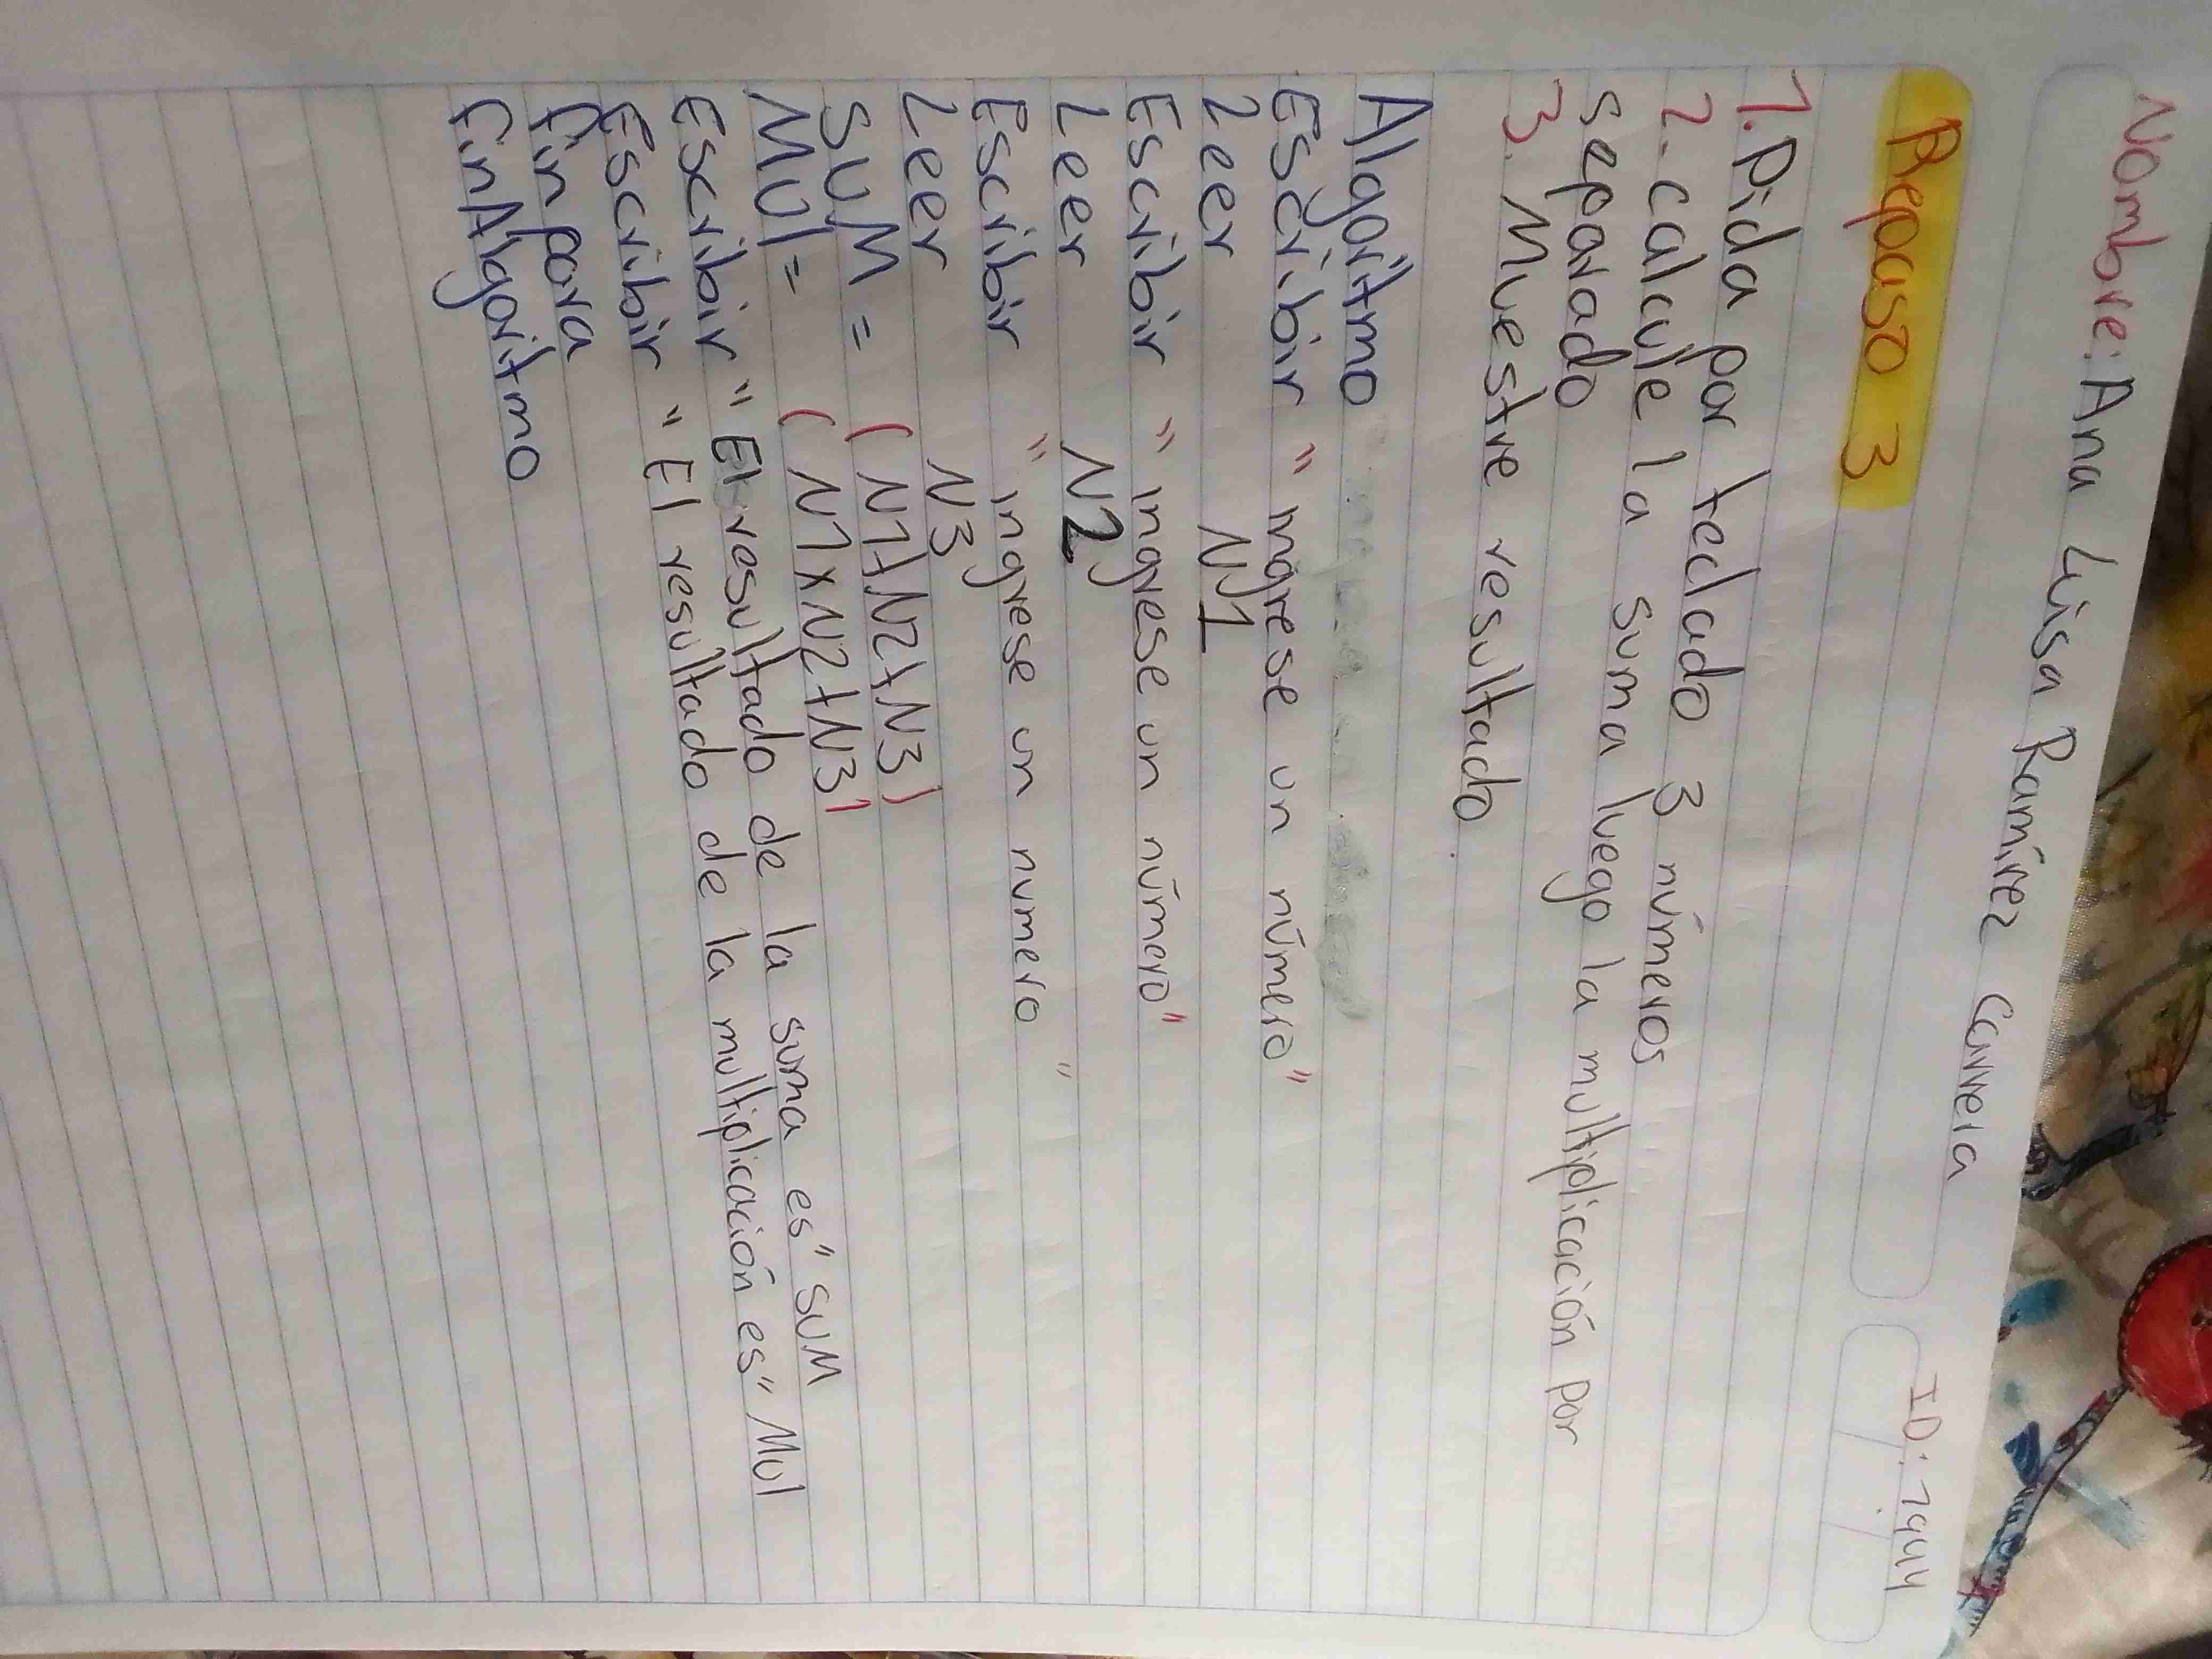 Nombre: Ana Lisa Ramírez Carrera
ID: 7944
Repaso 3
1. Pida por teclado 3 números
2. calcule la suma luego la multiplicación por
separado
3. Muestre resultado.
Algoritmo
Escribir "ingrese un número"
Leer N1
Escribir "ingrese un número"
Leer N2
Escribir "ingrese un numero"
Leer N3
SUM = (N1+N2+N3)
MUl = (N1xN2+N3)
Escribir "El resultado de la suma es" SUM
Escribir "El resultado de la multiplicación es" MUl
Fin para
FinAlgoritmo